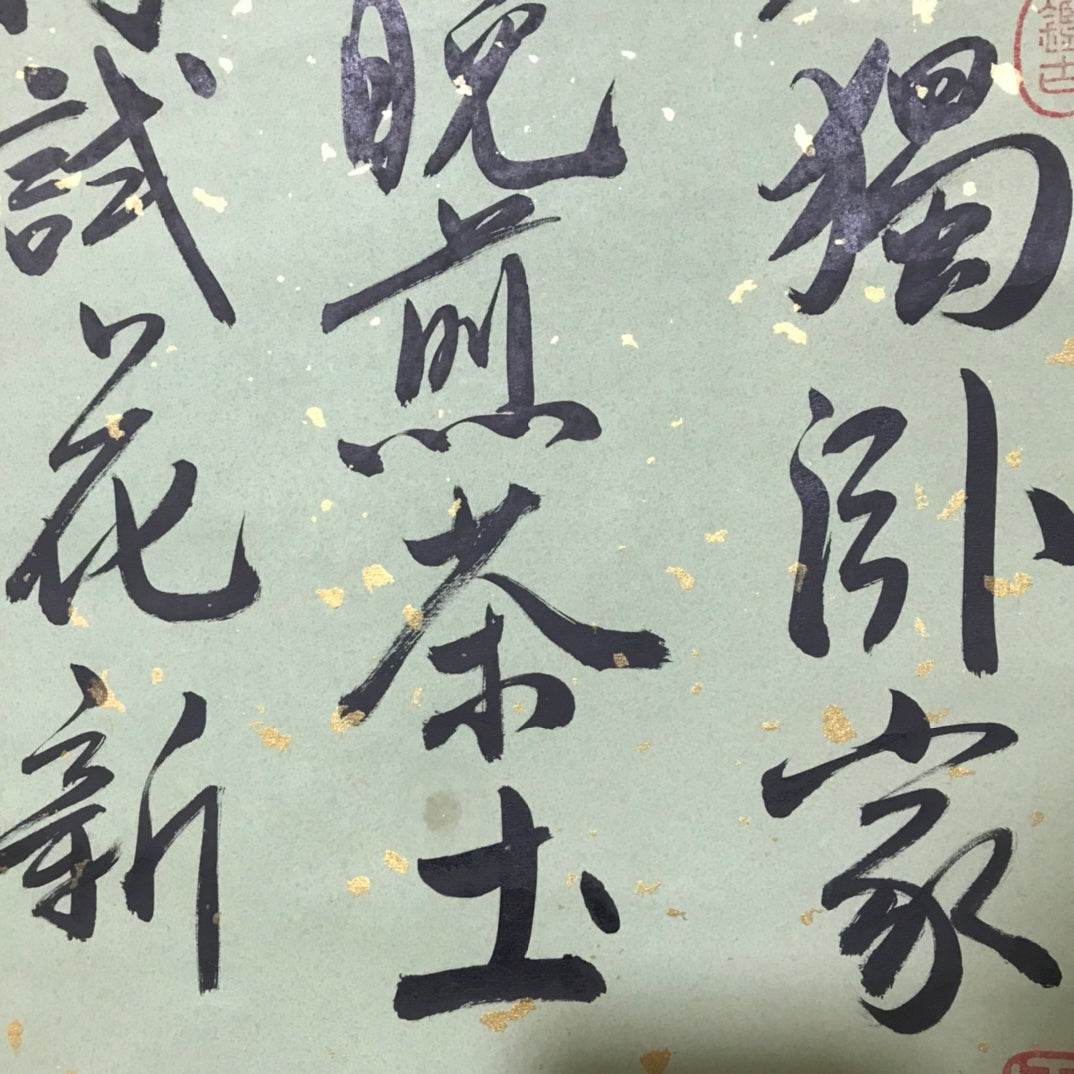 獨卧家
晚煎茶圡
試花新